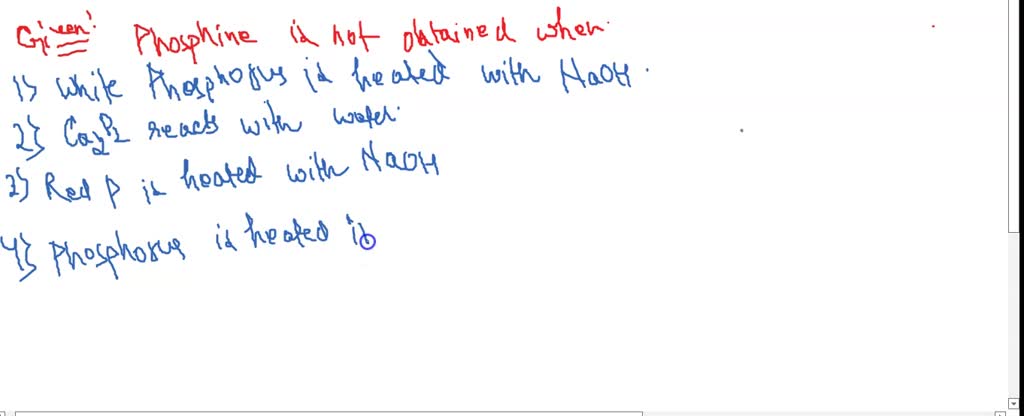 Given: Phosphine is not obtained when.
1) White Phosphorus is heated with NaOH.
2) Ca3P2 reacts with water.
3) Red P is heated with NaOH
4) Phosphorus is heated in